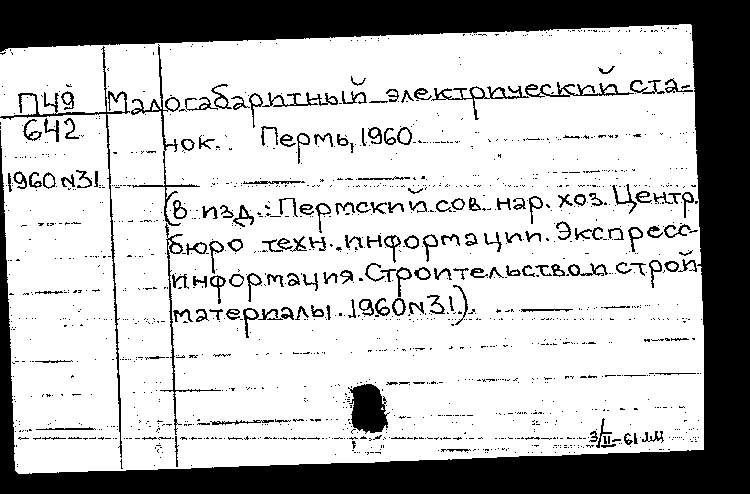 П49 Малогабаритный электрический ста-
642 нок. Пермь, 1960
1960 N31
(в изд.: Пермский сов. нар. хоз. Центр.
бюро техн. информации. Экспресс-
информация. Строительство и строй-
материалы. 1960 N31).
3/II-61 мм